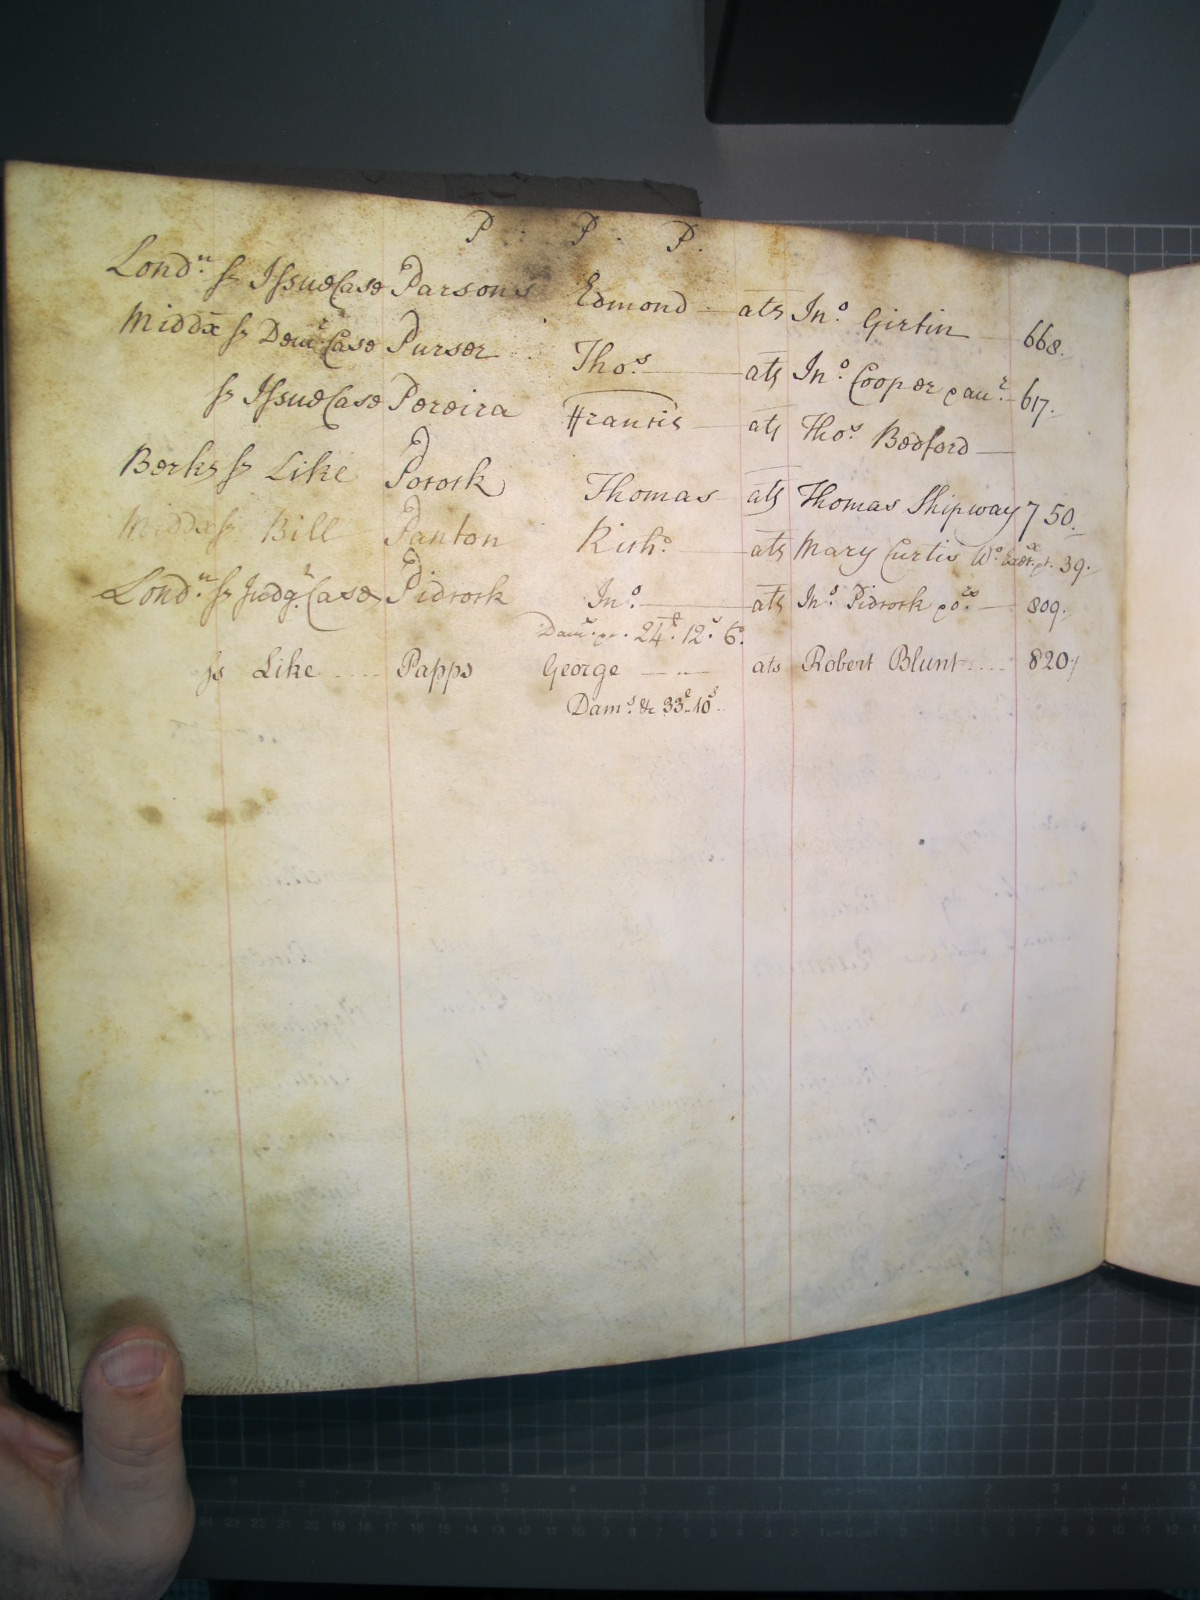 P. P. P.
Lond.n ss Issue Case Parsons Edmond ats Jn.o Girtin 668.
Middx ss Dem.r Case Purser Tho.s ats Jn.o Cooper 617.
ss Issue Case Pereira Francis ats Tho.s Bedford
Berks ss Like Pocock Thomas ats Thomas Shipway 750.
Middx ss Bill Panton Rich.d ats Mary Curtis W.o 39.
Lond.n ss Judg.t Case Pidcock Jn.o ats Jn.o Pidcock 809.
Dam.s 24 12 6
ss Like .... Papps George ats Robert Blunt .... 820
Dam.s &c 33 10